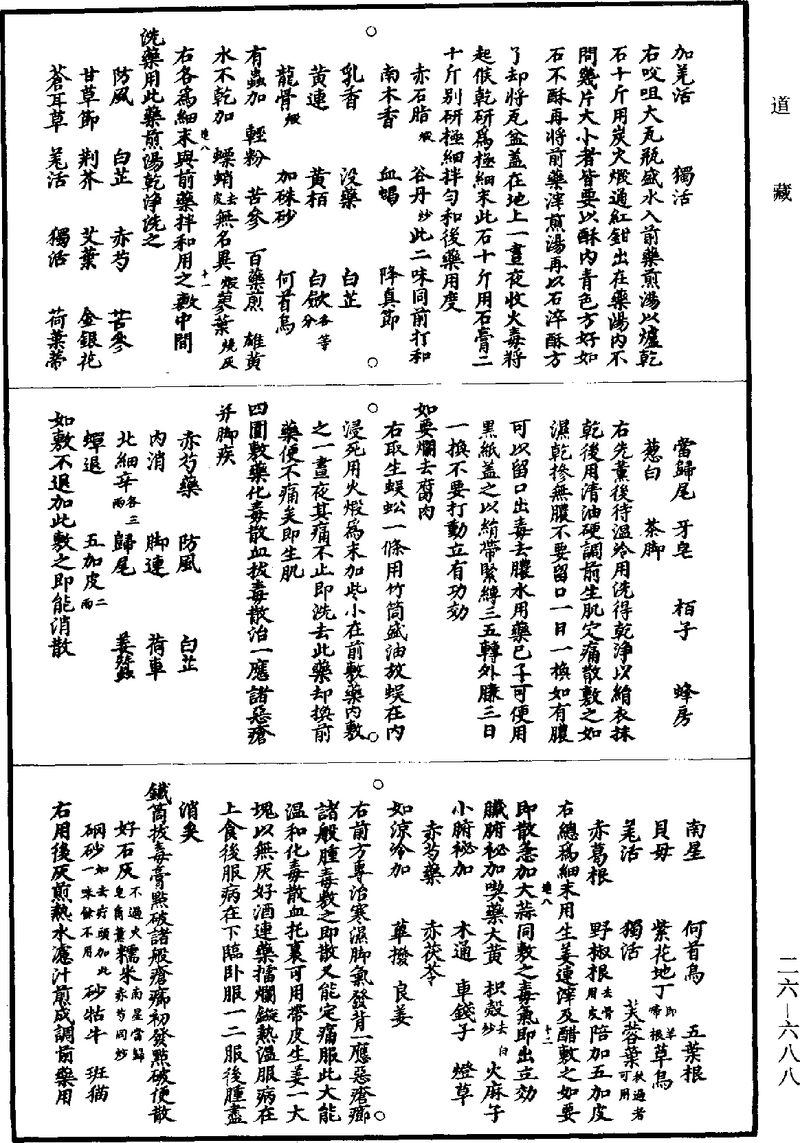 道藏
加羌活　獨活
右㕮咀大瓦瓶盛水入前藥煎湯以爐乾
石十斤用炭火煅通紅鉗出在藥湯内不
問幾片大小者皆要以酥内青色方好如
石不酥再將前藥滓煎湯再以石淬酥方
了却將瓦盆蓋在地上一晝夜收火毒將
起候乾研爲極細末此石十斤用石膏二
十斤别研極細拌勻和後藥用度
赤石脂煅　谷丹炒此二味同前打和
南木香　血蝎　降真節
乳香　没藥　白芷
黄連　黄栢　白歛各等分
龍骨煅　加硃砂　何首烏
有蟲加　輕粉　苦參　百藥煎　雄黄
水不乾加　螵蛸去皮無名異煅蓼葉燒灰
右各爲細末與前藥拌和用之敷中間
洗藥用此藥煎湯乾淨洗之
防風　白芷　赤芍　苦參
甘草節　荆芥　艾葉　金銀花
蒼耳草　羌活　獨活　荷葉蒂
當歸尾　牙皂　栢子　蜂房
葱白　茶脚
右先薰後待温冷用洗得乾淨以絹衣抹
乾後用清油硬調前生肌定痛散敷之如
濕乾摻無膿不要留口一日一換如有膿
可以留口出毒去膿水用藥已了可便用
黑紙蓋之以絹帶緊縛三五轉外臁三日
一換不要打動立有功効
如要爛去腐肉
右取生蜈蚣一條用竹筒盛油放蜈在内
浸死用火煅爲末加些小在前敷藥内敷
之一晝夜其痛不止即洗去此藥却換前
藥便不痛矣即生肌
四圍敷藥化毒散血拔毒散治一應諸惡瘡
并脚疾
赤芍藥　防風　白芷
内消　脚連　荷車
北細辛各三兩　歸尾　薑蠶
蟬退　五加皮二兩
如敷不退加此敷之即能消散
南星　何首烏　五葉根
貝母　紫花地丁即羊帶根草烏
羌活　獨活　芙蓉葉秋過者可用
赤葛根　野椒根去骨用皮陪加五加皮
右總爲細末用生姜連滓及醋敷之如要
即散急加大蒜同敷之毒氣即出立効
臟腑秘加喫藥大黄　枳殻炒去白　火麻子
小腑秘加　木通　車錢子　燈草
赤芍藥　赤茯苓
如涼冷加　蓽撥　良姜
右前方專治寒濕脚氣發背一應惡瘡癤
諸般腫毒敷之即散又能定痛服此大能
温和化毒散血托裏可用帶皮生姜一大
塊以無灰好酒連藥擂爛鎚熱温服病在
上食後服病在下臨卧服一二服後腫盡
消矣
鐵筒拔毒膏點破諸般瘡癤初發點破便散
好石灰不過火皂角薰糯米南星當歸赤芍同炒
硇砂如去疔頭加此一味餘不用　砂牯牛　班猫
右用後灰煎熱水濾汁煎成調前藥用
二六—六八八